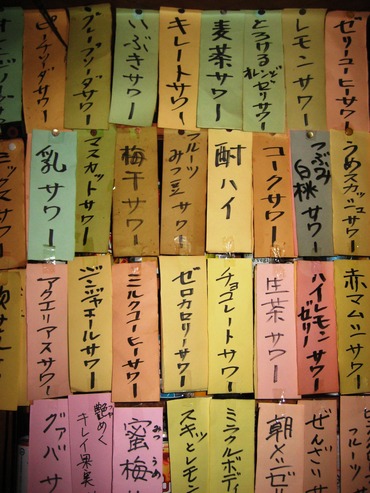 ゼリーコーヒーサワー
レモンサワー
とろけるオレンジゼリーサワー
麦茶サワー
キレートサワー
いぶきサワー
グレープソーダサワー
ピーチソーダサワー
うめスカッシュサワー
つぶみ白桃サワー
コークサワー
酎ハイ
フルーツみつ豆サワー
梅干サワー
マスカットサワー
乳サワー
ミックスサワー
赤マムシサワー
ハイレモンゼリーサワー
生茶サワー
チョコレートサワー
ゼロカロリーサワー
ミルクコーヒーサワー
ジンジャエールサワー
アクエリアスサワー
サワー
フルーツ
ぜんざいサ
朝メゼリ
ミラクルボディ
スキッとレモン
蜜梅
みつうめ
艶めくキレイ果実
つや
グァバサ